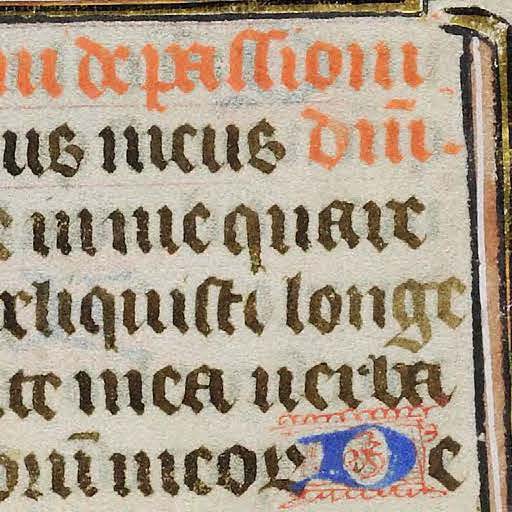 de passioni
us meus dñi.
in me quare
reliquisti longe
mea uerba
meoꝝ De